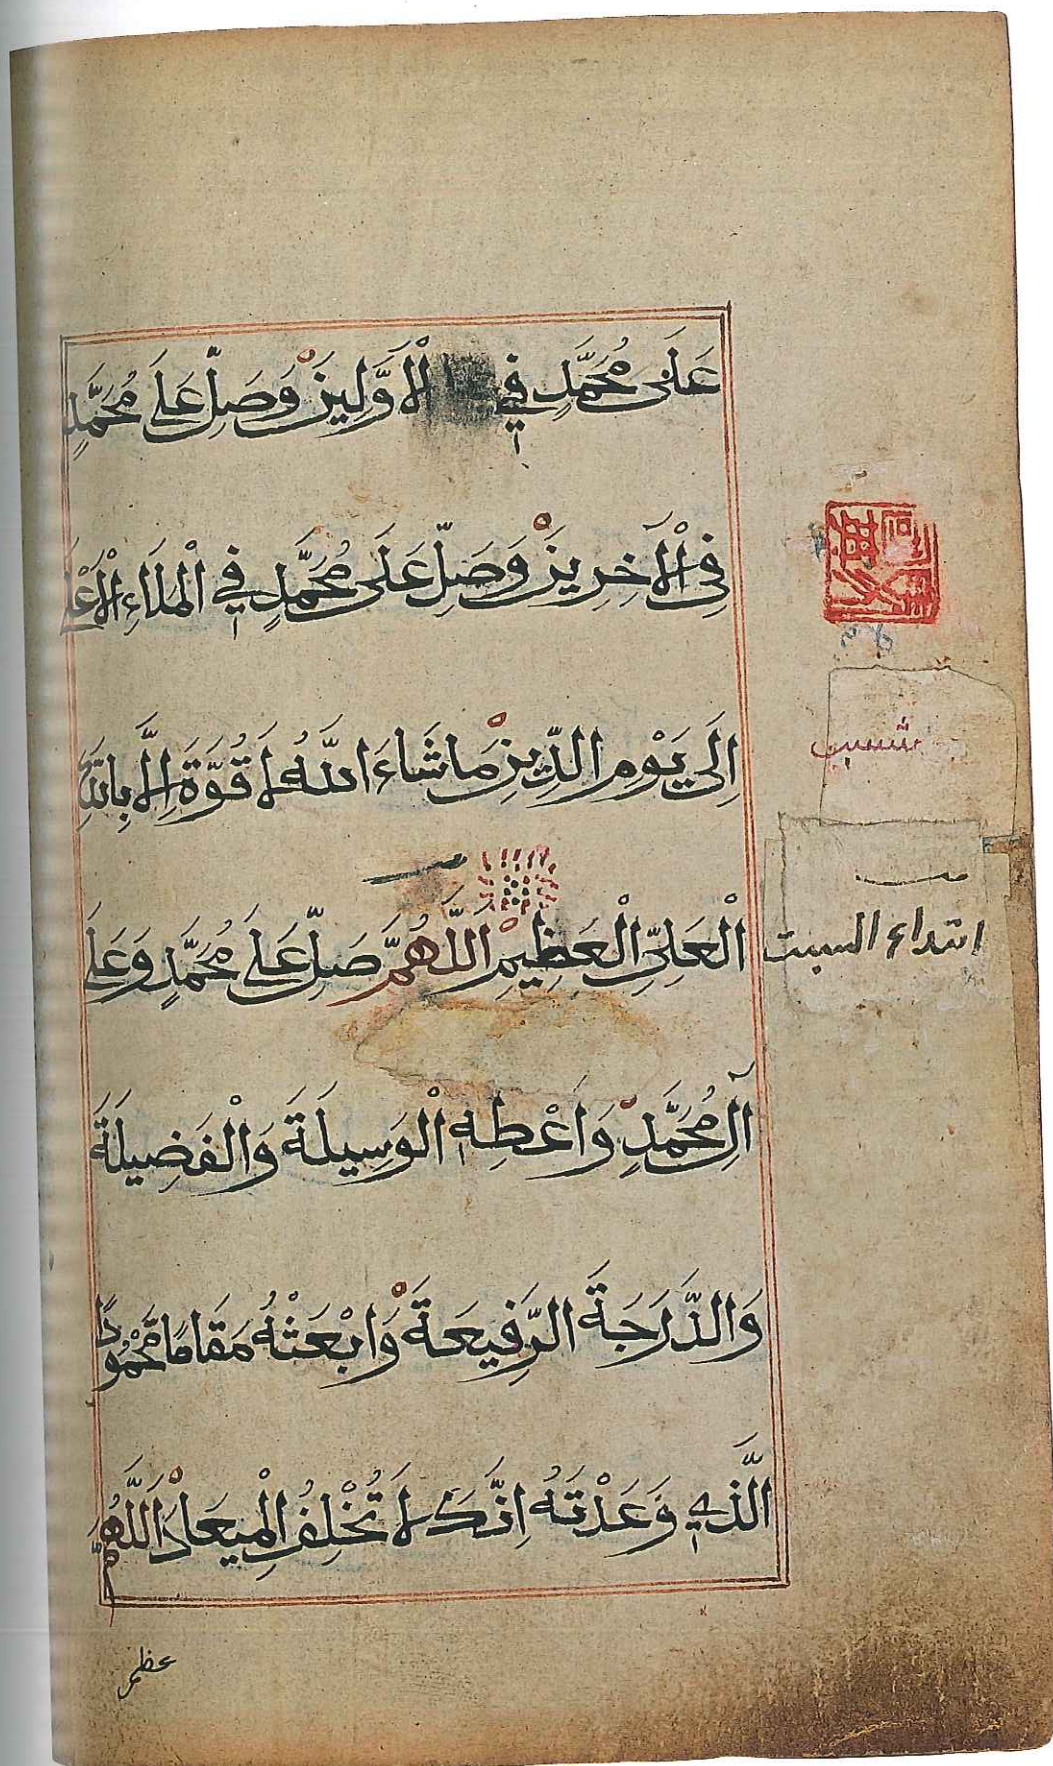 عَلَى مُحَمَّدٍ فِي الْاَوَّلِينَ وَصَلِّ عَلَى مُحَمَّدٍ
فِى الْآخِرِينَ وَصَلِّ عَلَى مُحَمَّدٍ فِي الْمَلَاءِ الْاَعْلَى
اِلَى يَوْمِ الدِّينِ مَا شَاءَ اللَّهُ لَا قُوَّةَ اِلَّا بِاللَّهِ
الْعَلِىِّ الْعَظِيمِ اَللَّهُمَّ صَلِّ عَلَى مُحَمَّدٍ وَعَلَى
ابتداء السبت
آلِ مُحَمَّدٍ وَاَعْطِهِ الْوَسِيلَةَ وَالْفَضِيلَةَ
وَالدَّرَجَةَ الرَّفِيعَةَ وَابْعَثْهُ مَقَامًا مَحْمُودًا
الَّذِي وَعَدْتَهُ اِنَّكَ لَا تُخْلِفُ الْمِيعَادَ اَللَّهُمَّ
عظم